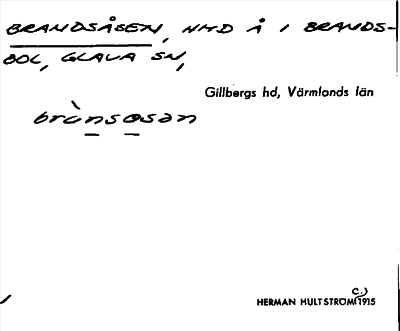 BRANDSÅSEN, HMD Å I BRANDS-
BOL, GLAVA SN,
Gillbergs hd, Värmlands län
brànsosan
C.)
HERMAN HULTSTRÖM 1915